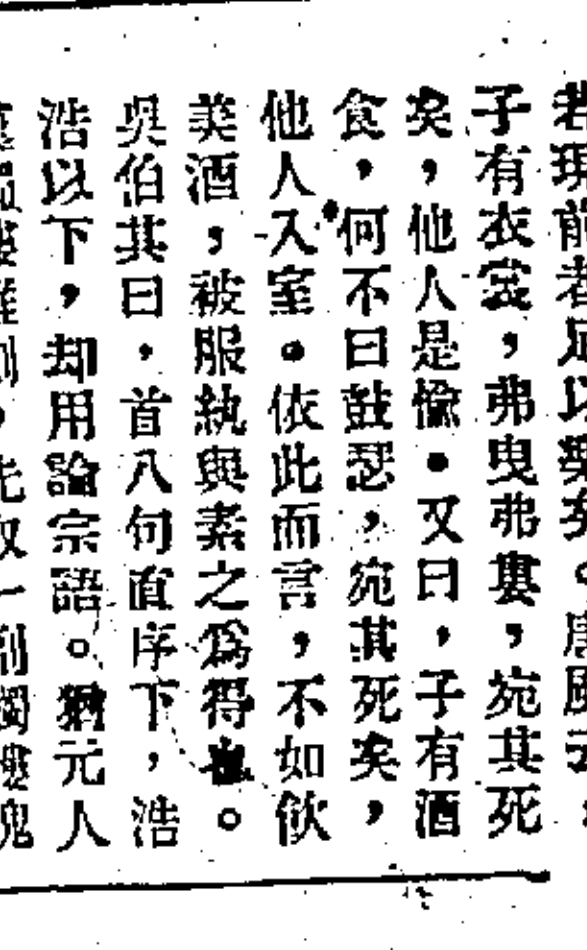 若現前者足以樂矣。唐風云，
子有衣裳，弗曳弗婁，宛其死
矣，他人是愉。又曰，子有酒
食，何不曰鼓瑟，宛其死矣，
他人入室。依此而言，不如飲
美酒，被服紈與素之爲得也。
吳伯其曰，首八句直序下，浩
浩以下，却用論宗語。猶元人